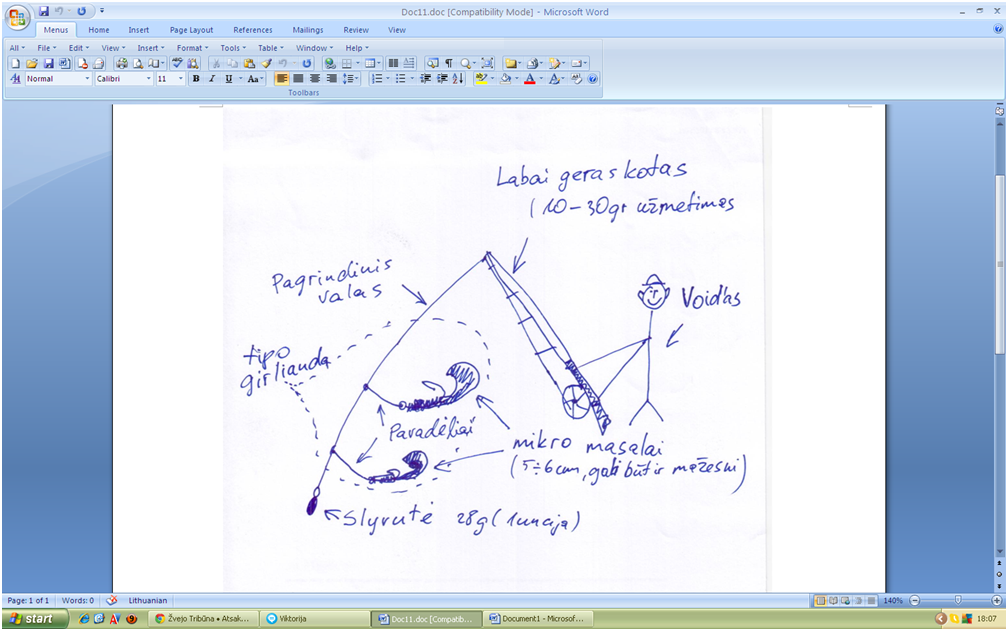 Doc11.doc [Compatibility Mode] - Microsoft Word
Menus Home Insert Page Layout References Mailings Review View
All File Edit View Insert Format Tools Table Window Help
Normal Calibri 11 B I U Aa
Toolbars
Labai geras kotas
(10-30gr užmetimas
Pagrindinis
valas
Voidas
tipo
girlianda
Pavadėliai
mikro masalai
(5÷6cm, gali būt ir mažesni)
Slyvutė 28g (1uncija)
Page: 1 of 1 Words: 0 Lithuanian 140%
start Žvejo Tribūna • Atsak... Viktorija Doc11.doc [Compatib... Document1 - Microsof... 18:07